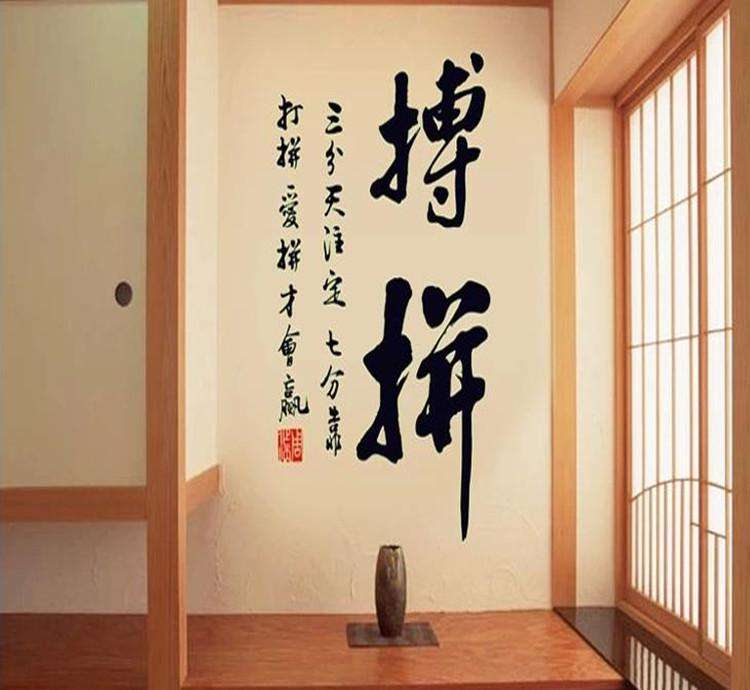 搏拼
三分天注定 七分靠
打拼 愛拼才會贏